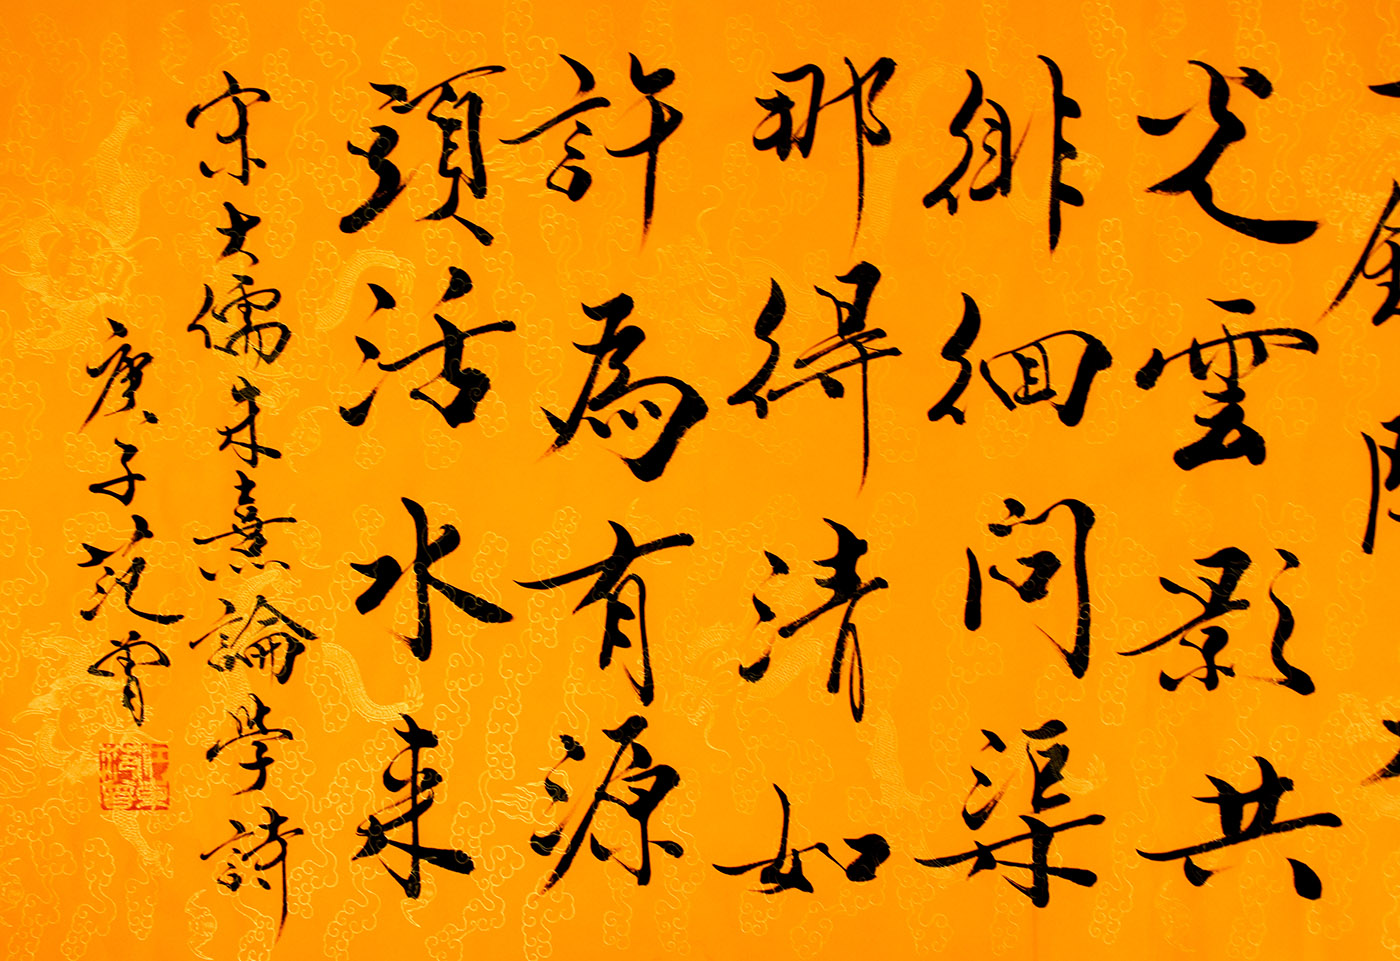 光雲影共
徘徊問渠
那得清如
許為有源
頭活水来
宋大儒朱熹論学詩
庚子范